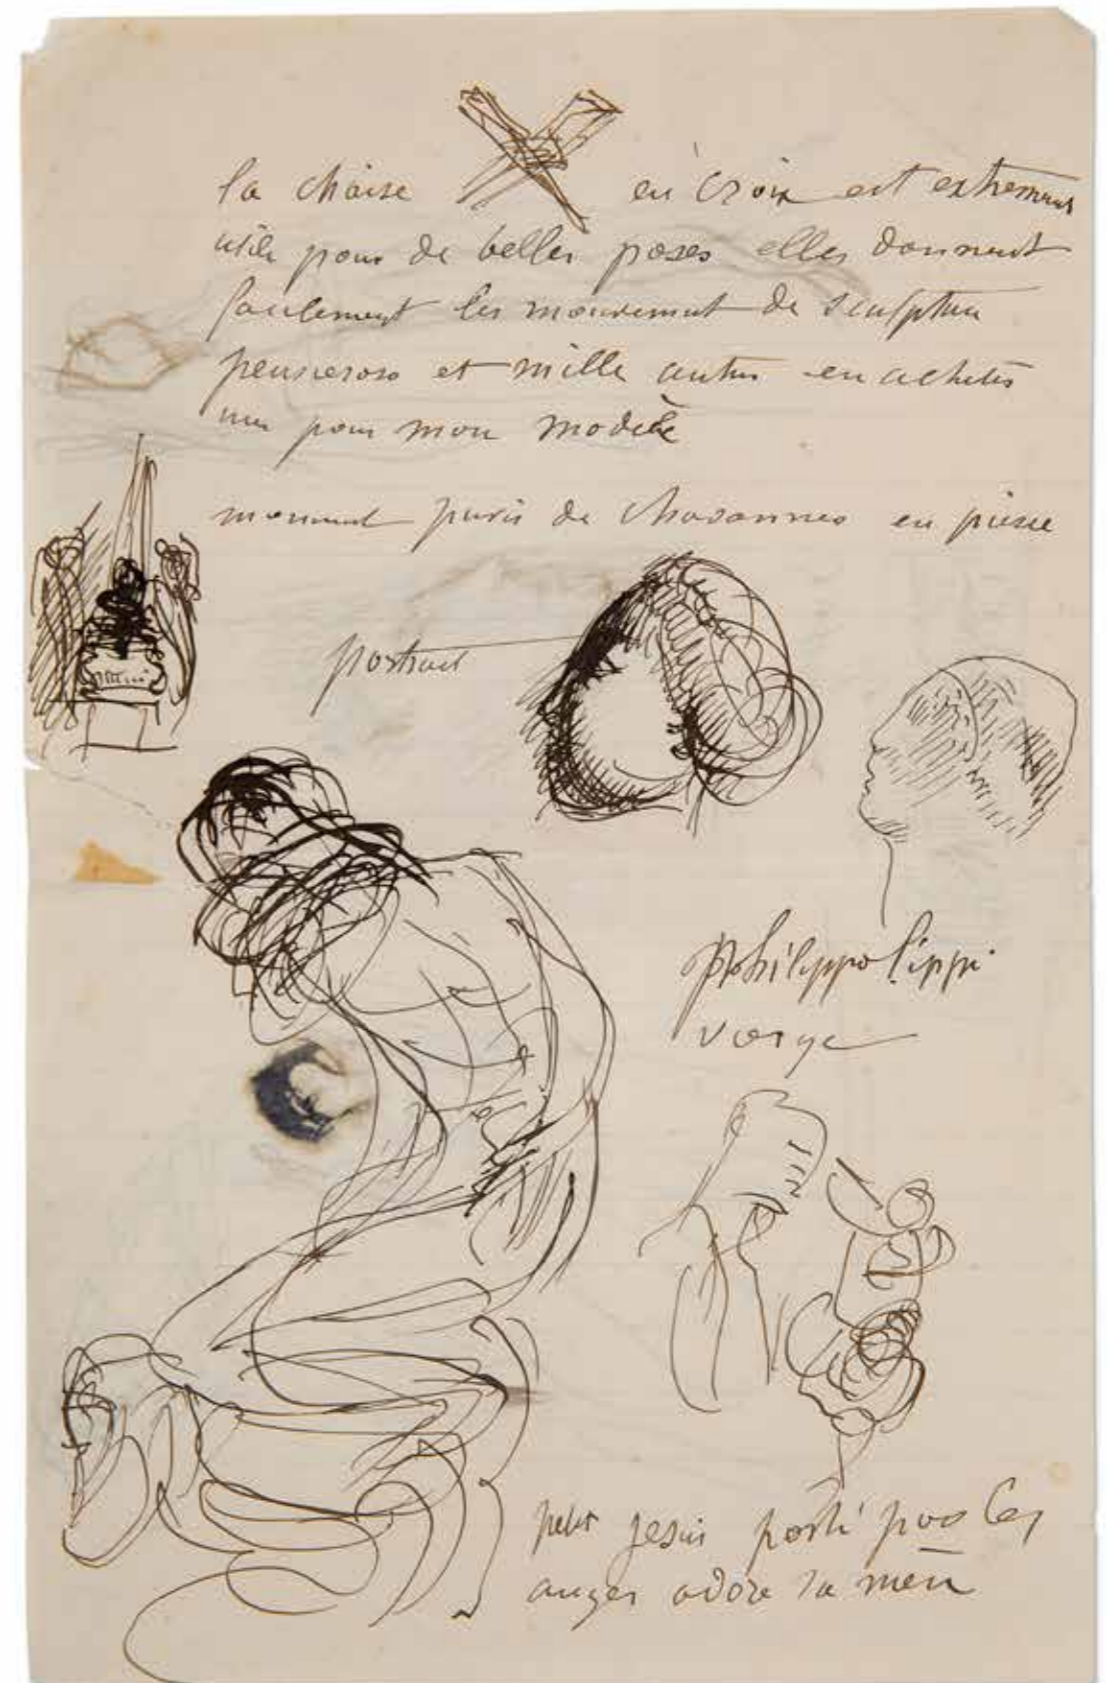 la chaise en croix est extremement
utile pour de belles poses elles donnent
seulement les mouvement de sculpture
penseroso et mille autres en achetes
une pour mon modèle
monument puvis de chavannes en pierre
portrait
philippo lippi
vierge
petit jesus porté par les
anges adore sa mère